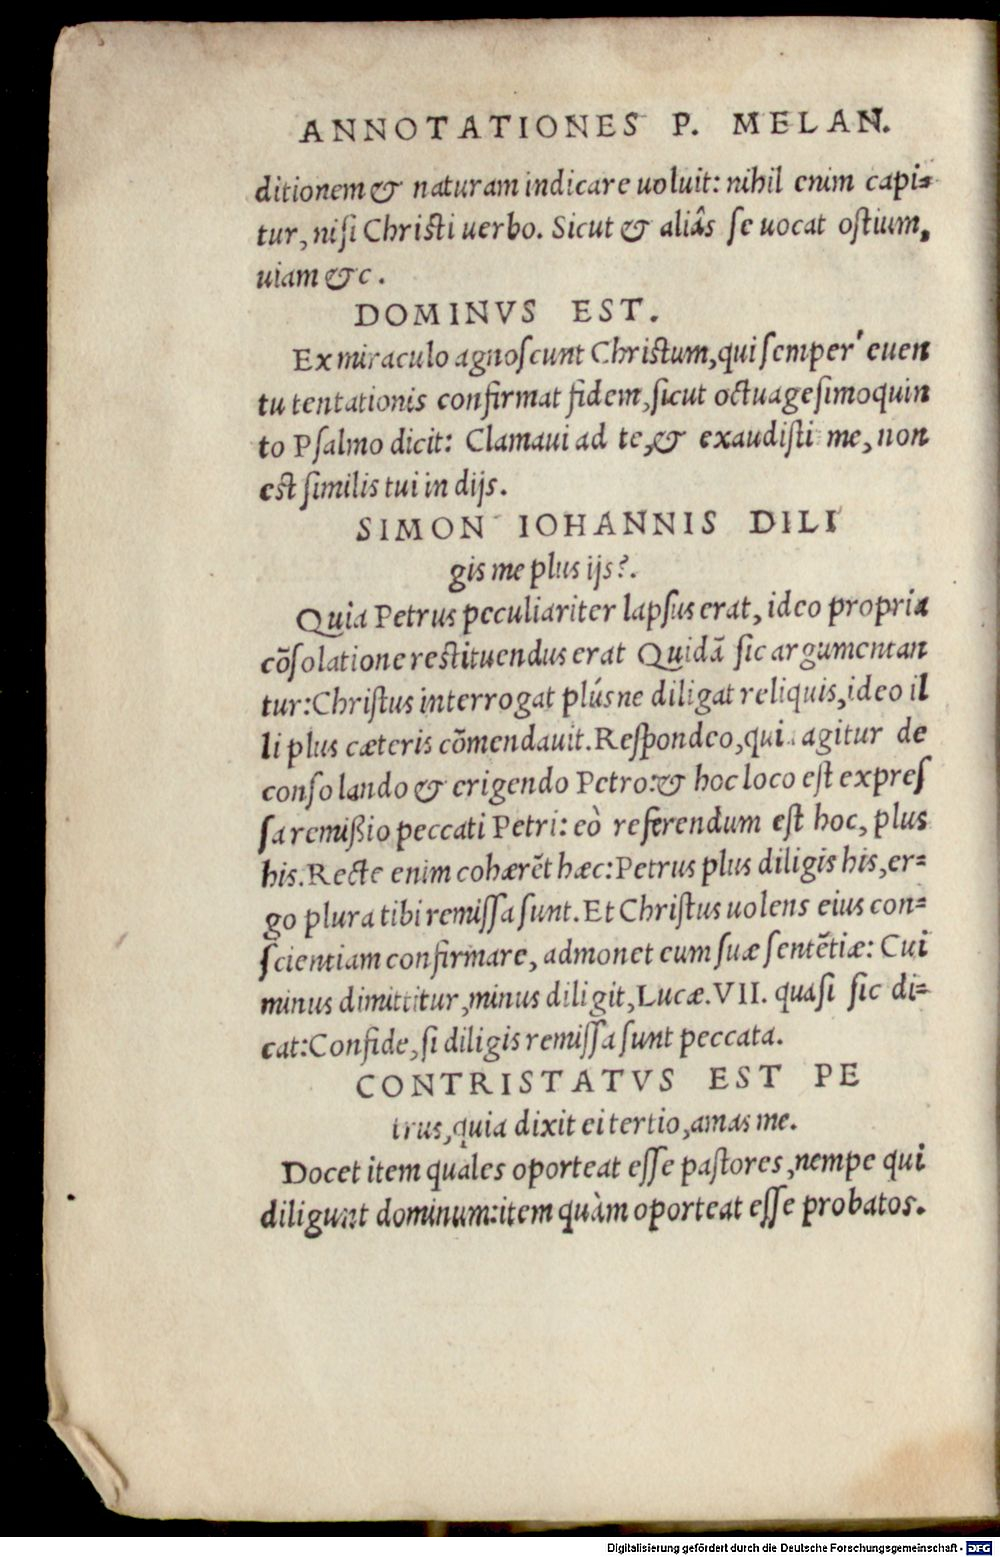 ANNOTATIONES P. MELAN.
ditionem & naturam indicare uoluit: nihil enim capi=
tur, nisi Christi uerbo. Sicut & aliâs se uocat ostium,
uiam &c.
DOMINVS EST.
Ex miraculo agnoscunt Christum, qui semper euen
tu tentationis confirmat fidem, sicut octuagesimoquin
to Psalmo dicit: Clamaui ad te, & exaudisti me, non
est similis tui in dijs.
SIMON IOHANNIS DILI
gis me plus ijs?.
Quia Petrus peculiariter lapsus erat, ideo propria
cōsolatione restituendus erat Quidā sic argumentan
tur: Christus interrogat plúsne diligat reliquis, ideo il
li plus cæteris cōmendauit. Respondeo, qui agitur de
consolando & erigendo Petro: & hoc loco est expres
sa remißio peccati Petri: eò referendum est hoc, plus
his. Recte enim cohærēt hæc: Petrus plus diligis his, er=
go plura tibi remissa sunt. Et Christus uolens eius con=
scientiam confirmare, admonet eum suæ sentētiæ: Cui
minus dimittitur, minus diligit, Lucæ. VII. quasi sic di=
cat: Confide, si diligis remissa sunt peccata.
CONTRISTATVS EST PE
trus, quia dixit ei tertio, amas me.
Docet item quales oporteat esse pastores, nempe qui
diligunt dominum: item quàm oporteat esse probatos.
Digitalisierung gefördert durch die Deutsche Forschungsgemeinschaft - DFG